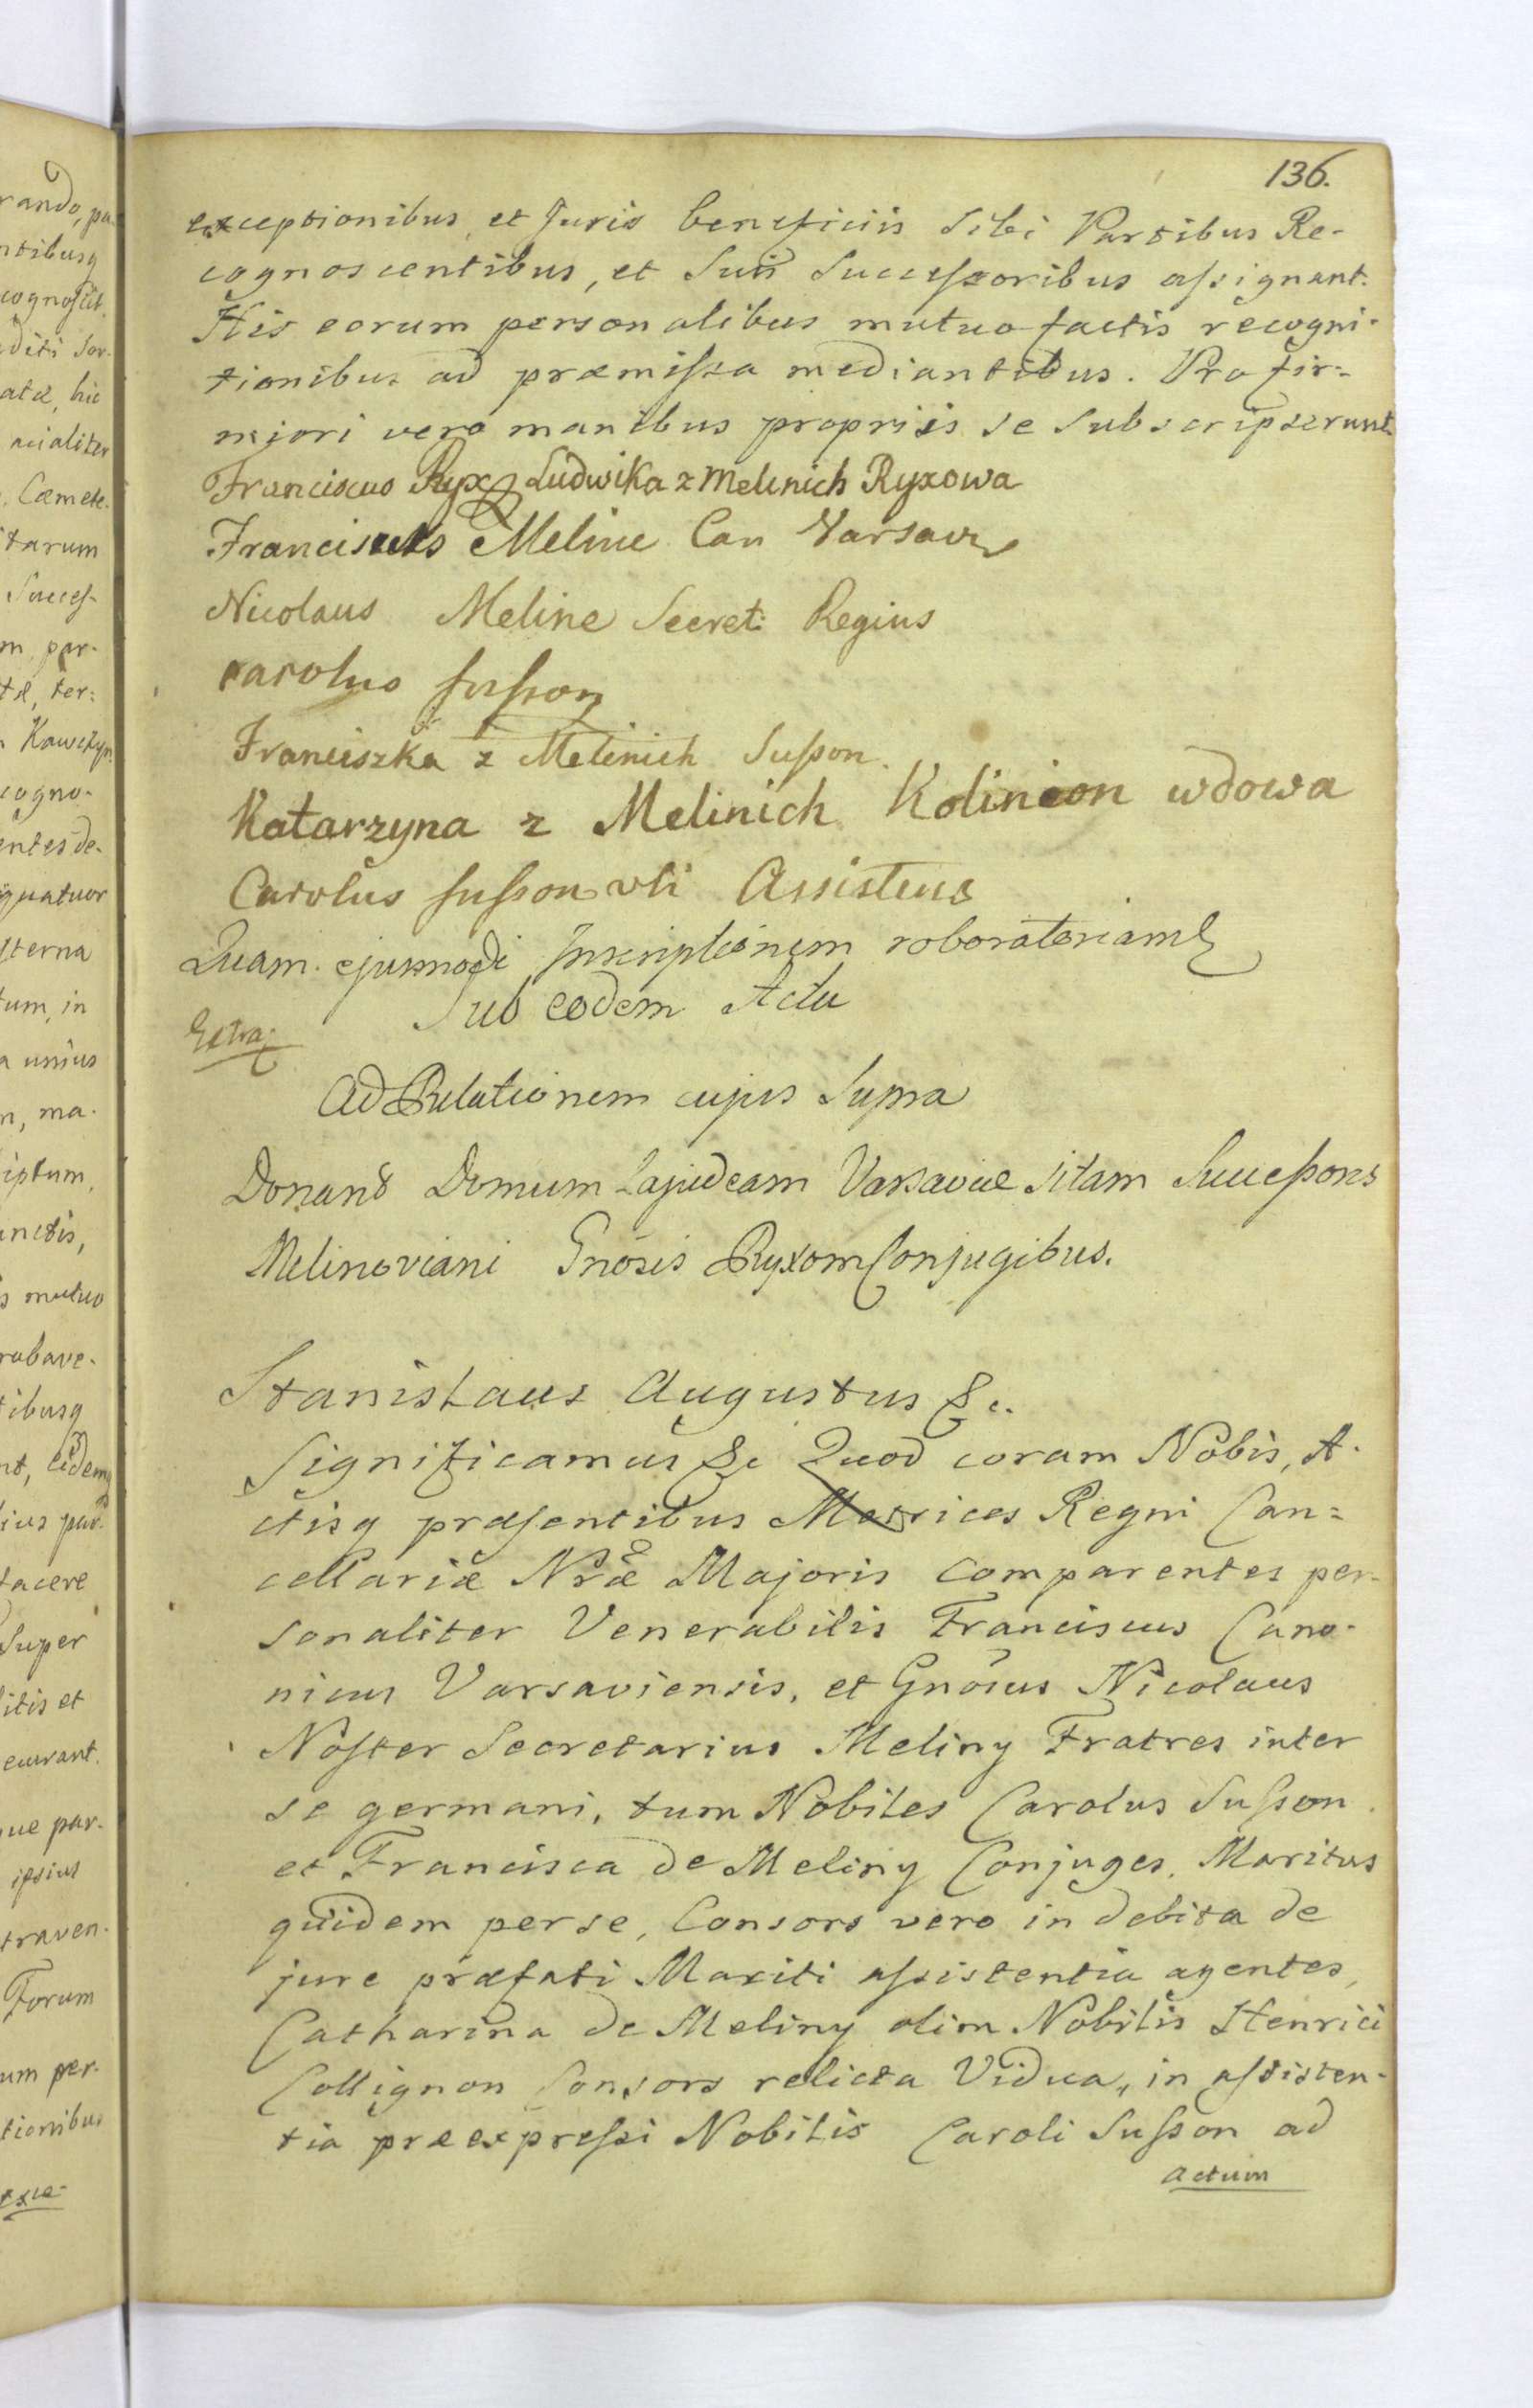 136.
exceptionibus, et Juris beneficiis sibi Partibus Re-
cognoscentibus, et Suis Successoribus assignant.
His eorum personalibus mutuo factis recogni-
tionibus ad præmissa mediantibus. Pro fir-
miori vero manibus propriis se subscripserunt
Franciscus Ryx Ludwika z Melinich Ryxowa
Franciscus Meline Can Varsav
Nicolaus Meline Secret: Regius
Carolus Susson
Franciszka z Melinich Susson.
Katarzyna z Melinich Kolinion wdowa
Carolus Susson uti Assistens
Quam ejusmodi Inscriptionem roboratoriam
Sub eodem Actu
Extra:
Ad Relationem cujus Supra
Donand Domum Lapideam Varsaviæ sitam Successons
Melinoviani Gnosis Ryxom Conjugibus.
Stanislaus Augustus &c.
Significamus &c Quod coram Nobis, A-
ctisq præsentibus Metrices Regni Can=
cellariæ Nræ Majoris comparentes per-
sonaliter Venerabilis Franciscus Cano-
nicus Varsaviensis, et Gnosus Nicolaus
Noster Secretarius Meliny Fratres inter
se germani, tum Nobiles Carolus Susson
et Francisca de Meliny Conjuges, Maritus
quidem per se, Consors vero in debita de
jure præfati Mariti assistentia agentes,
Catharina de Meliny olim Nobilis Henrici
Collignon Consors relicta Vidua, in assisten-
tia præexpressi Nobilis Caroli Susson ad
actum
rando, pa
ntibusq
cognoscit
diti
atæ, hic
acialiter
Cæmete-
tarum
Succes-
m, per-
tæ, ter:
Kawczyn
cogno-
entes de-
quatuor
sterna
tum, in
a unius
n, ma-
iptum,
unctis,
s mutuo
robave-
tibusq
nt, eidemq
ius par
facere
Super
litis et
curant.
ue par-
ipsius
traven-
Forum
um per-
tionibus
exce-